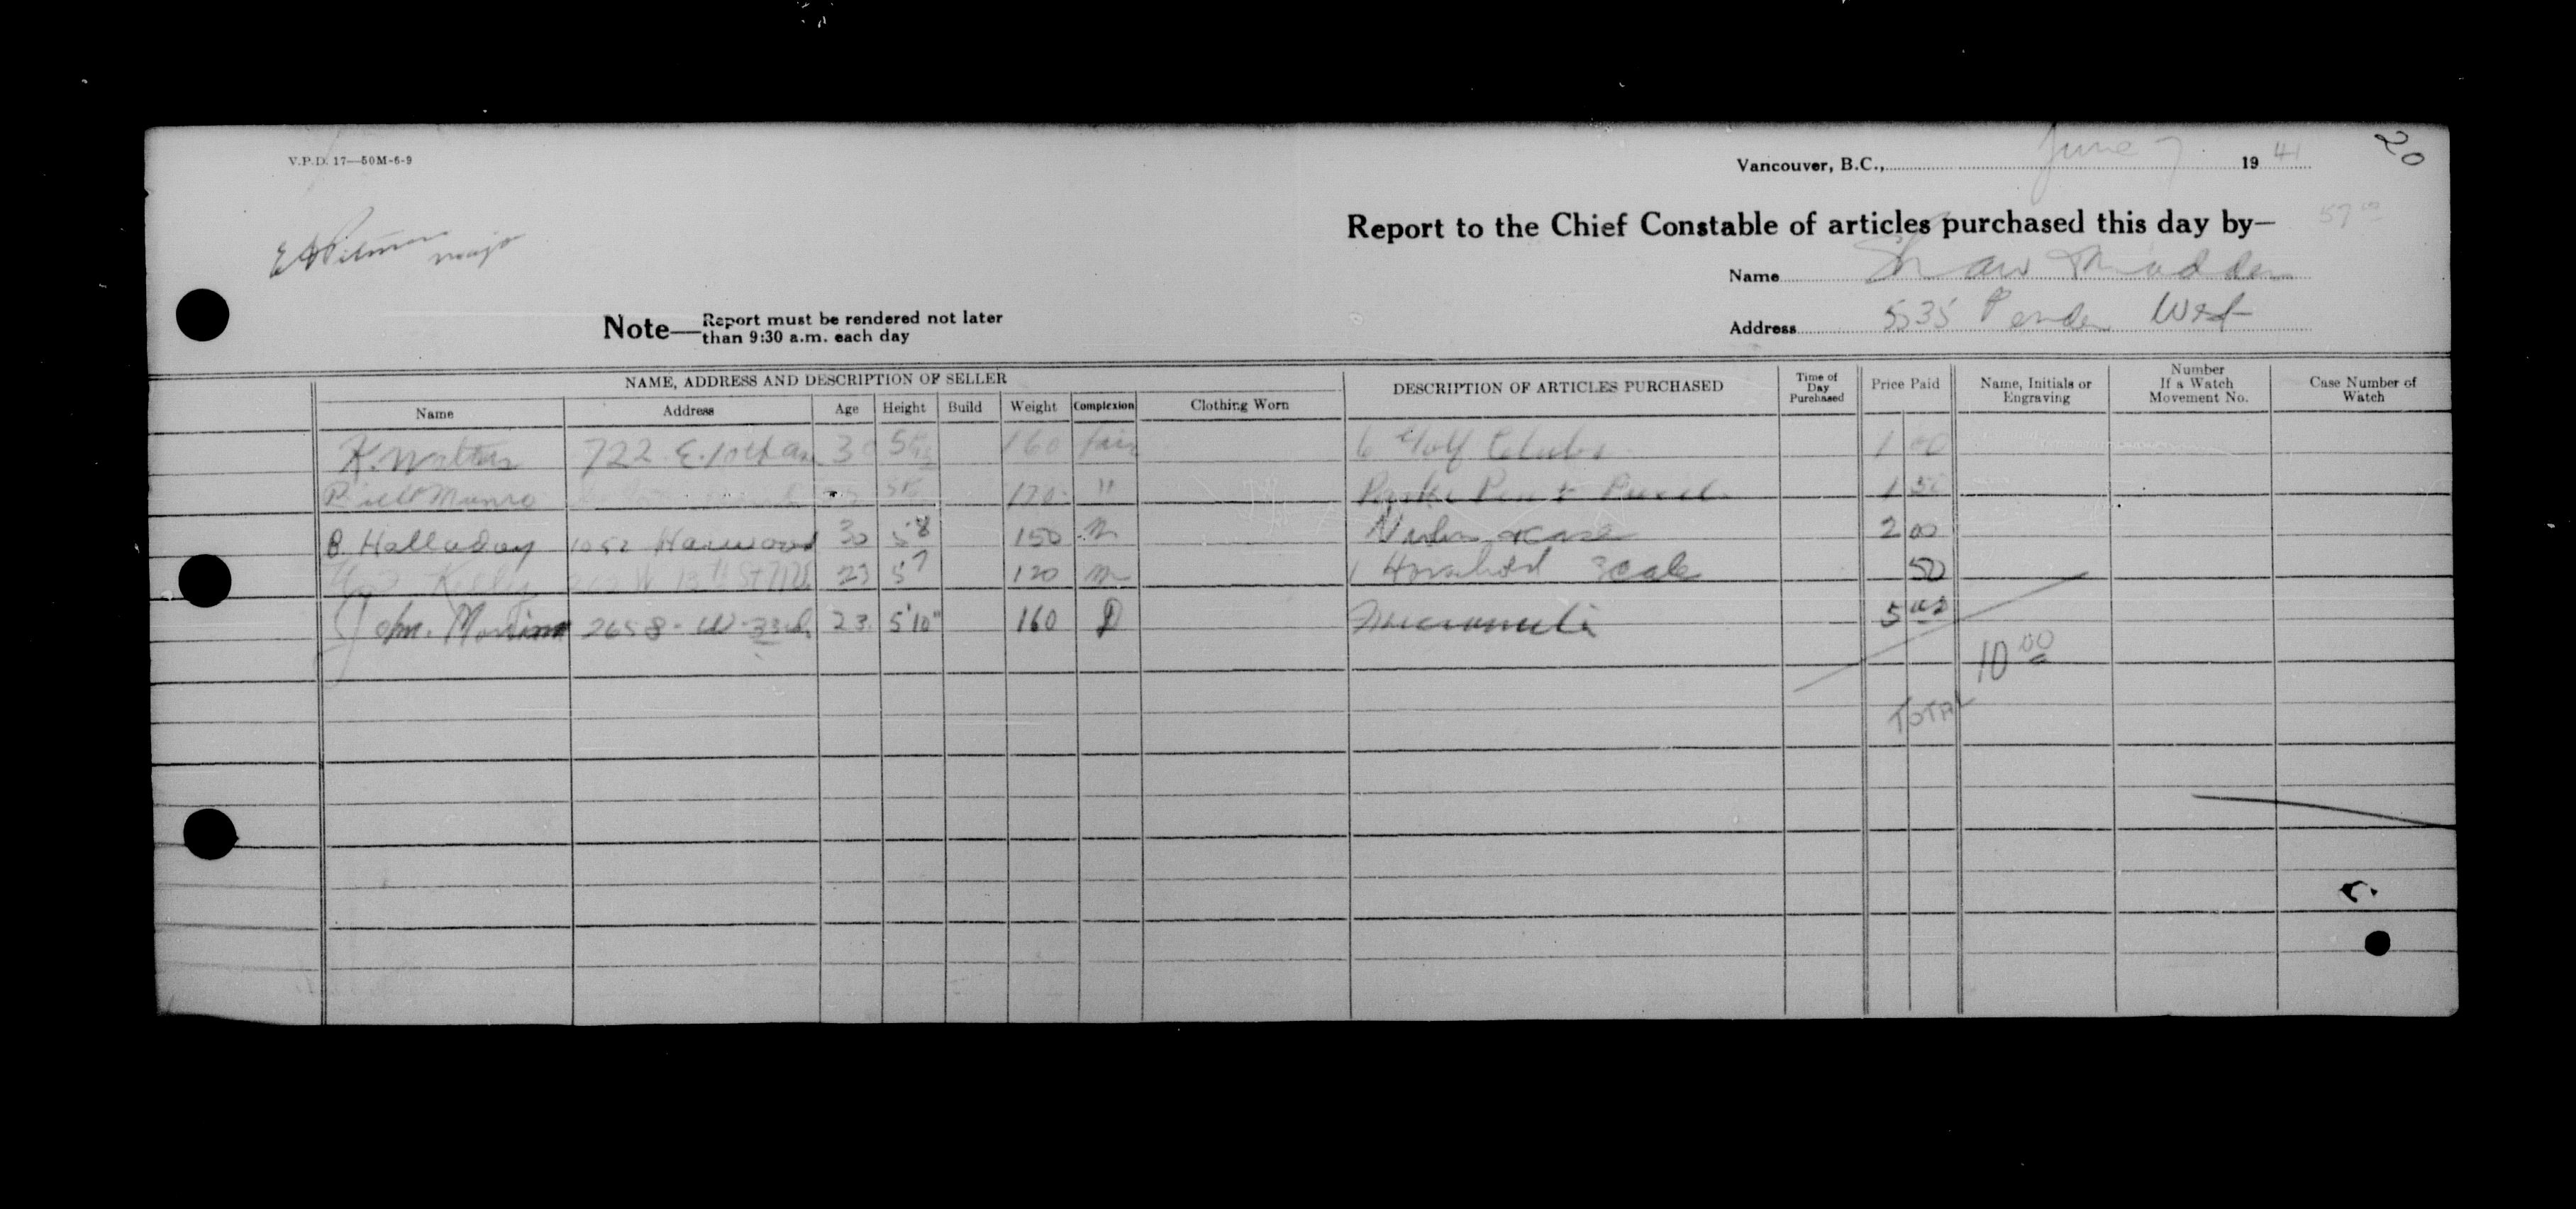 V.P.D. 17—50M-6-9
Vancouver, B.C., June 7 19 41
20
Report to the Chief Constable of articles purchased this day by—
57 00
Name Shaw Madden
Address 535 Pender West
Note—Report must be rendered not later
than 9:30 a.m. each day
NAME, ADDRESS AND DESCRIPTION OF SELLER
DESCRIPTION OF ARTICLES PURCHASED
Time of Day Purchased
Price Paid
Name, Initials or Engraving
Number If a Watch Movement No.
Case Number of Watch
Name Address Age Height Build Weight Complexion Clothing Worn
K. Walters 722 E. 10th av 30 160 fair 6 Golf Clubs 1 00
Bill Munro 170 " Pen & Pencil 1 50
B. Halladay 1052 Harwood 30 5 8 150 m case 2 00
Kelly 262 W 13th St 23 5 7 120 m 1 Household Scale 50
John. 2658 - W - 33rd. 23. 5'10" 160 D 5 00
10 00
TOTAL